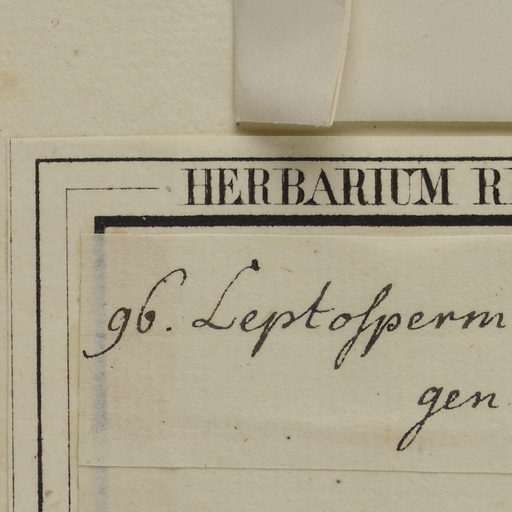 HERBARIUM R
96. Leptoſperm
gen